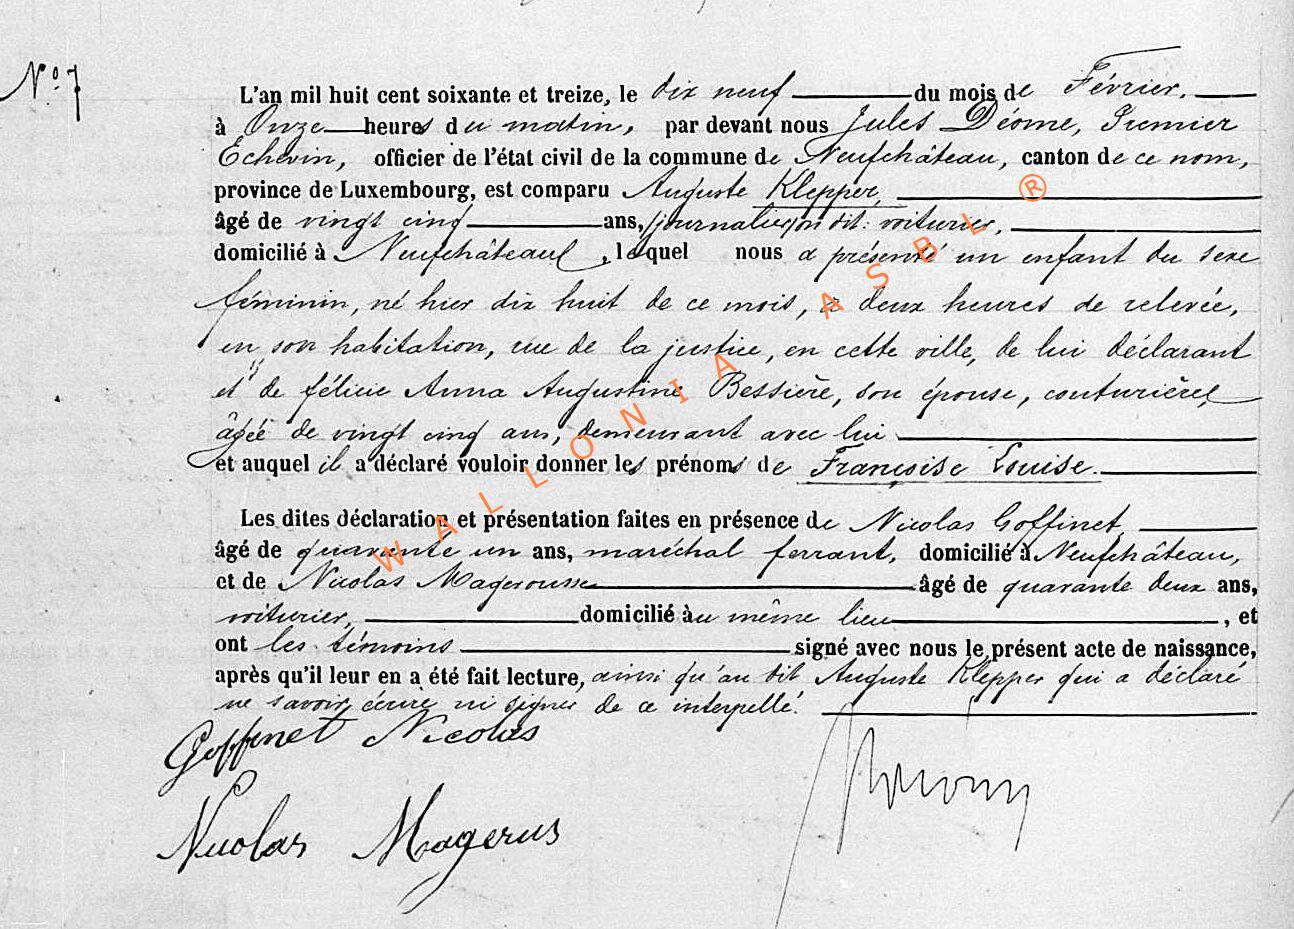 N° 7
L'an mil huit cent soixante et treize, le dix neuf du mois de Février,
à Onze heures du matin, par devant nous Jules Déome, Premier
Echevin, officier de l'état civil de la commune de Neufchâteau, canton de ce nom,
province de Luxembourg, est comparu Auguste Klepper,
âgé de vingt cinq ans, journalier, on dit: voiturier,
domicilié à Neufchâteau, lequel nous a présenté un enfant du sexe
féminin, né hier dix huit de ce mois, à deux heures de relevée,
en son habitation, rue de la justice, en cette ville, de lui déclarant
et de félicie Anna Augustine Bessière, son épouse, couturière,
âgée de vingt cinq ans, demeurant avec lui
et auquel il a déclaré vouloir donner les prénoms de Françoise Louise.
Les dites déclaration et présentation faites en présence de Nicolas Goffinet,
âgé de quarante un ans, maréchal ferrant, domicilié à Neufchâteau,
et de Nicolas Magerousse âgé de quarante deux ans,
voiturier, domicilié au même lieu, et
ont les témoins signé avec nous le présent acte de naissance,
après qu'il leur en a été fait lecture, ainsi qu'au dit Auguste Klepper qui a déclaré
ne savoir écrire ni signer de ce interpellé.
Goffinet Nicolas
Nicolas Magerus
WALLONIA ASBL ®